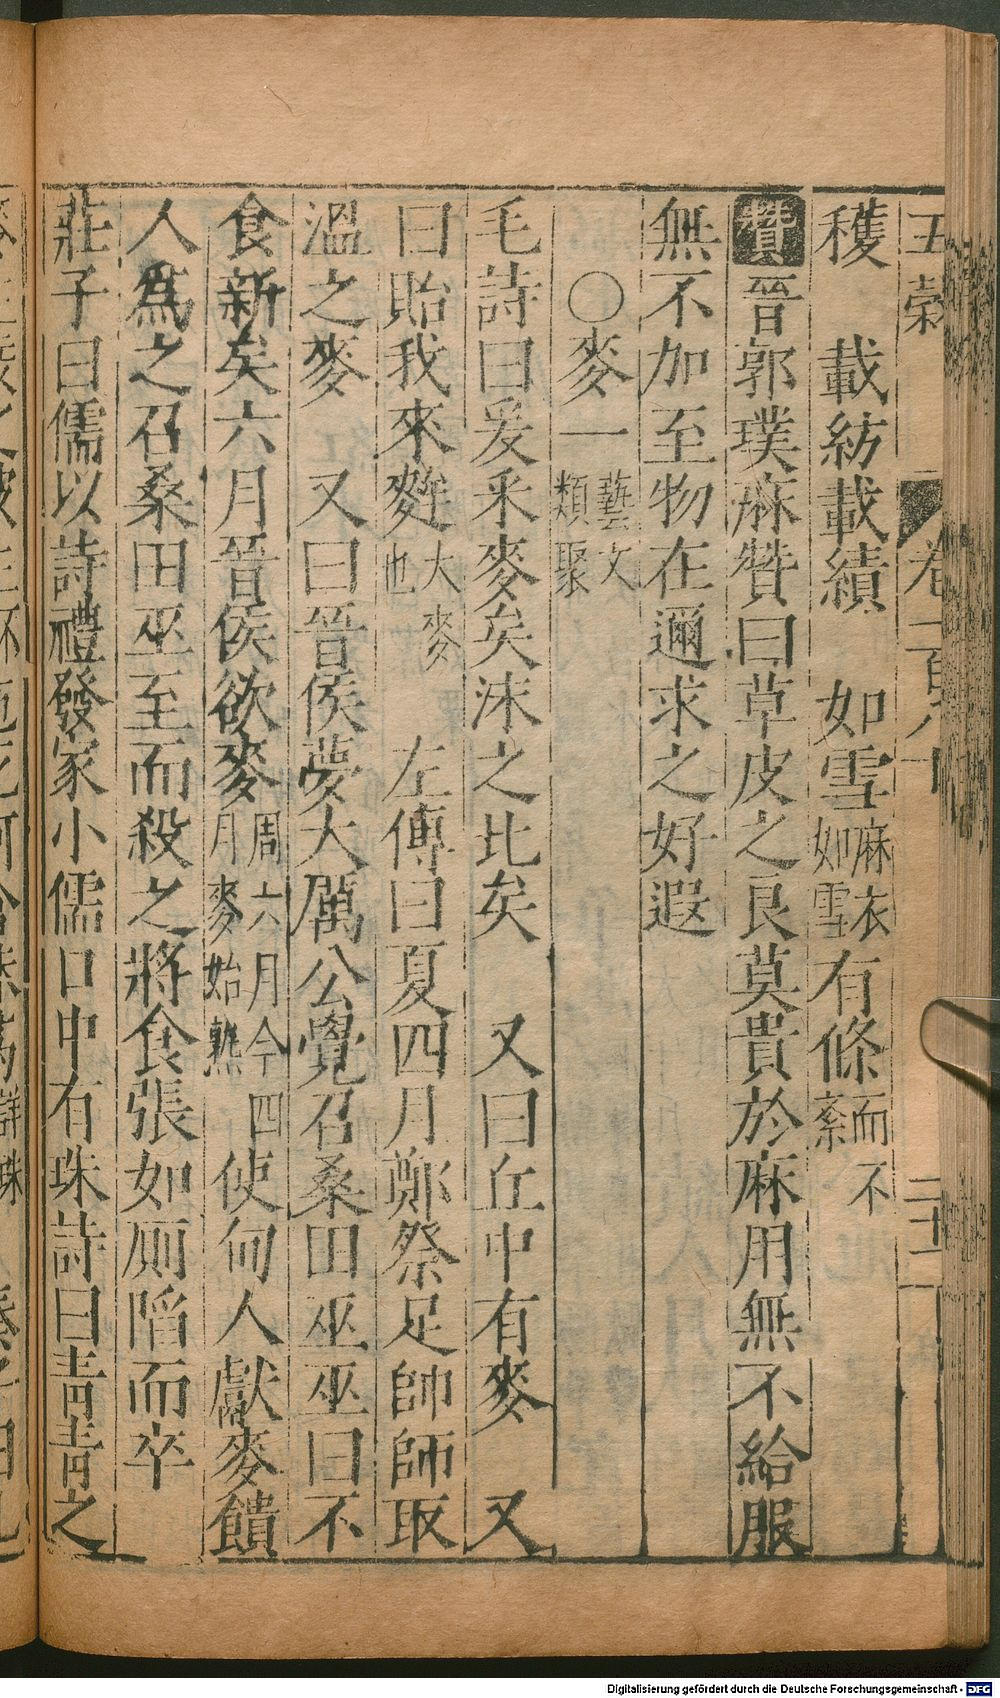 五穀 卷一百八十 二十二
穫 載紡載績 如雪麻衣如雪有條而不紊
贊晉郭璞麻贊曰草皮之良莫貴於麻用無不給服
無不加至物在邇求之好遐
○麥一藝文類聚
毛詩曰爰采麥矣沬之北矣 又曰丘中有麥 又
曰貽我來麰大麥也 左傳曰夏四月鄭祭足帥師取
溫之麥 又曰晉侯夢大厲公覺召桑田巫巫曰不
食新矣六月晉侯欲麥周六月今四月麥始熟使甸人獻麥饋
人爲之召桑田巫至而殺之將食張如厠陷而卒
莊子曰儒以詩禮發家小儒口中有珠詩曰青青之
Digitalisierung gefördert durch die Deutsche Forschungsgemeinschaft - DFG